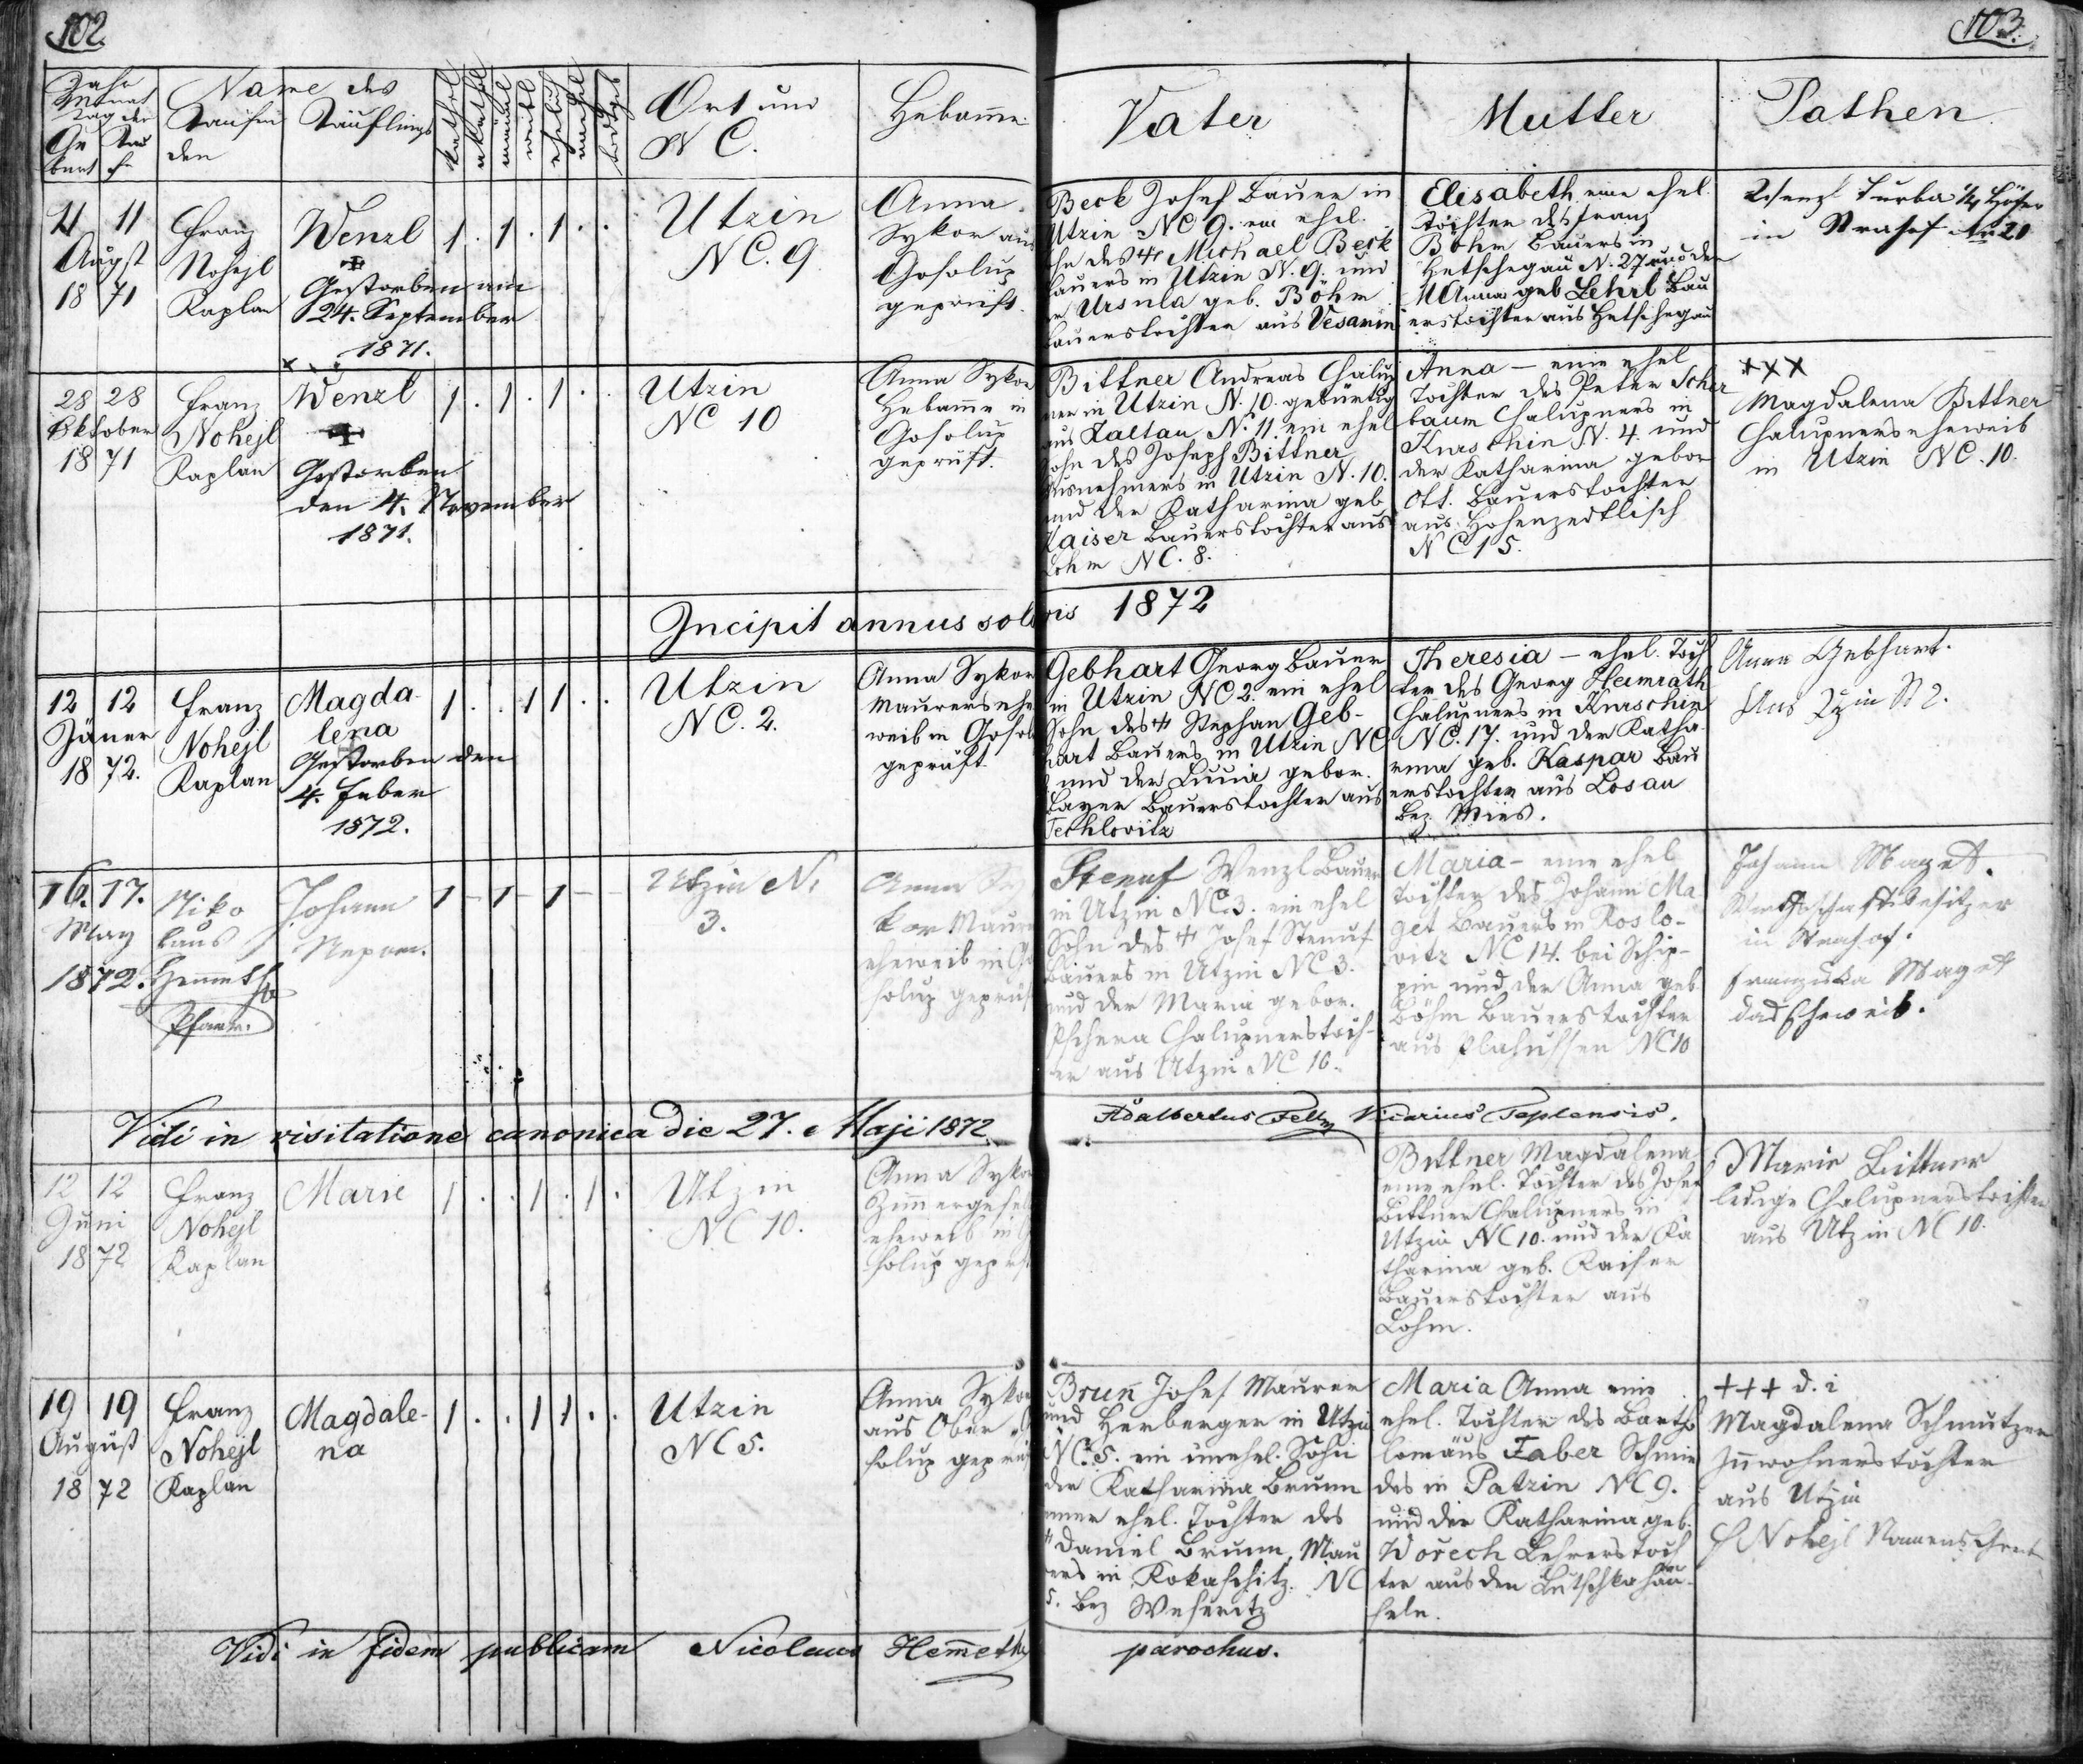 102.
103.
Jahr
Monat
Tag der
Ge Tau
burt fe
Name des
Taufen Täuflings
den
kathol
akathol
männl
weibl
ehelich
unehel
todtgeb
Ort und
N C.
Hebam̄e
Vater
Mutter
Pathen
11
August
18 71
Franz
Nohejl
Kaplan
Wenzl
Gestorben am
24. September
1871.
1 . 1 . 1 . .
Utzin
NC. 9
Anna
Sykor aus
Gosolup
geprüft.
Beck Josef Bauer in
Utzin NC 9. ein ehel.
Sohn des † Michael Beck
Bauers in Utzin N. 9. und
der Ursula geb. Böhm
Bauerstochter aus Vesamin
Elisabeth eine ehel.
Tochter des Franz
Böhm Bauers in
Hetschegau N. 27 und der
M Anna geb Lehrl Bau
erstochter aus Hetschegau
Wenzl Turba 1/4 Höfer
in Strahof
28 28
Oktober
18 71
Franz
Nohejl
Kaplan
Wenzl
Gestorben
den 4. November
1871.
1 . 1 . 1 . .
Utzin
NC 10
Anna Sykor
Hebam̄e in
Gosolup
geprüft.
Bittner Andreas Chalup
ner in Utzin N. 10. gebürtig
aus Zaltau N. 11. ein ehel
Sohn des Joseph Bittner
Ausnehmers in Utzin N. 10.
und der Katharina geb
Kaiser Bauerstochter aus
Lohm NC. 8.
Anna – eine ehel
Tochter des Peter Scher
baum Chalupners in
Kurschin N. 4. und
der Katharina gebor
Ott. Bauerstochter
aus Hohenzedtlisch
N C 15.
+++
Magdalena Bittner
Chalupnerseheweib
in Utzin NC. 10.
Incipit annus solaris 1872
12 12
Jäner
18 72.
Franz
Nohejl
Kaplan
Magda-
lena
Gestorben den
4. Feber
1872.
1 . . 1 1 . .
Utzin
NC. 2.
Anna Sykor
Maurersehe
weib in Gosol
geprüft.
Gebhart Georg Bauer
in Utzin NC 2. ein ehel
Sohn des † Stephan Geb-
hart Bauers in Utzin NC
und der gebor.
Bayer Bauerstochter aus
Techlovitz
Theresia – ehel. Toch
ter des Georg Heimrath
Chalupners in Kurschin
NC. 17. und der Katha-
rina geb. Kaspar Bau
erstochter aus Losau
Bez. Mies.
Anna Gebhart.
Aus N 2.
16. 17.
May
1872.
Niko
laus
Hemmeth
Pfarr.
Johann
Nepom.
1 - 1 - 1 - -
Utzin N.
3.
Anna Sy
kor Maurers
eheweib in Go
solup geprüft
Stenuf Wenzl Bauer
in Utzin NC 3. ein ehel
Sohn des † Josef Stenuf
Bauers in Utzin NC 3.
und der Maria gebor.
Pschera Chalupnerstoch-
ter aus Utzin NC 10.
Maria – eine ehel
Tochter des Johann Ma
get Bauers in Koslo-
vitz NC 14. bei Schip-
pin und der Anna geb
Böhm Bauerstochter
aus Plahussen NC 10
Johann Maget.
Wirthschaftsbesitzer
in Strahof.
Franziska Maget
das Eheweib.
Vidi in visitatione canonica die 27. Maji 1872.
Adalbertus Vicarius Teplensis.
12 12
Juni
18 72
Franz
Nohejl
Kaplan
Marie
1 . . 1 . 1 .
Utzin
NC 10.
Anna Sykor
Zim̄ergesel
eheweib in G
solup geprft
Bittner Magdalena
eine ehel. Tochter des Josef
Bittner Chalupners in
Utzin NC 10. und der Ka
tharina geb. Kaiser
Bauerstochter aus
Lohm.
Marie Bittner
ledige Chalupnerstochter
aus Utzin NC 10.
19 19
August
18 72
Franz
Nohejl
Kaplan
Magdale-
na
1 . . 1 1 . .
Utzin
NC 5.
Anna Sykor
aus Ober Go
solup geprüft
Brun̄ Josef Maurer
und Herberger in Utzin
NC. 5. ein unehel. Sohn
der Katharina Brunn
einer ehel. Tochter des
† Daniel Brunn, Mau
rers in Kokaschitz NC
5. Bez Weseritz
Maria Anna eine
ehel. Tochter des Bartho
lomäus Faber Schmie
des in Patzin NC 9.
und der Katharina geb.
Wořech Lehrerstoch
ter aus den Lutschkahäu-
seln.
+++ d. i
Magdalena Schmutzer
In̄wohnerstochter
aus Utzin
F Nohejl Namens
Vidi in fidem publicam Nicolaus Hem̄eth
parochus.